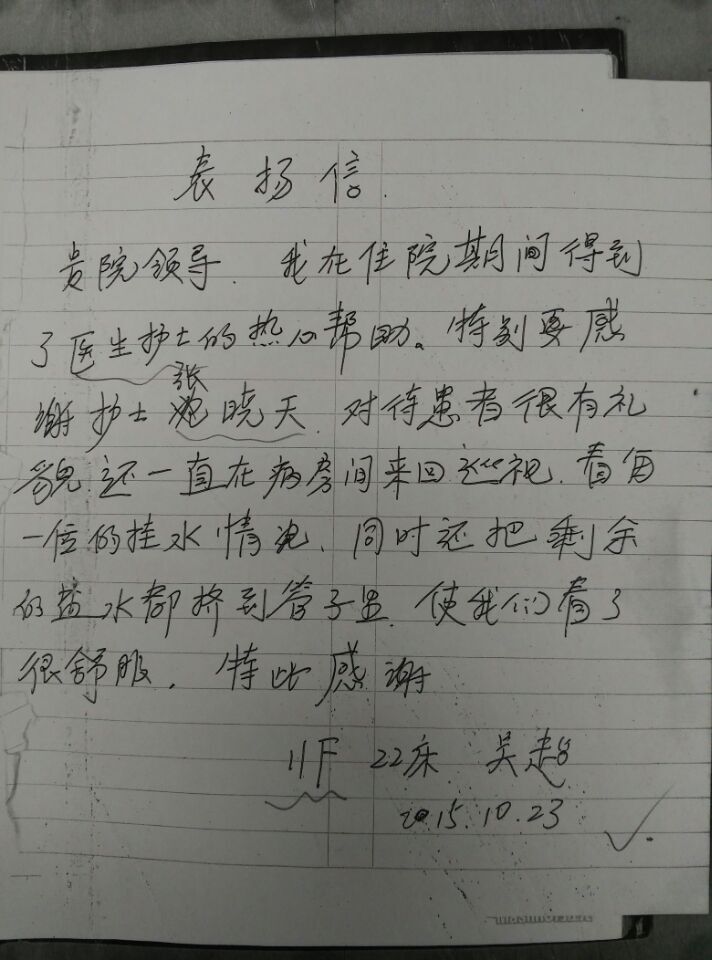 表扬信.
贵院领导. 我在住院期间得到
了医生护士的热心帮助。特别要感
张
谢护士晓天. 对待患者很有礼
貌.还一直在病房间来回巡视.看每
一位的挂水情况、同时还把剩余
的盐水都挤到管子里.使我们看了
很舒服. 特此感谢
11F 22床 吴超
2015.10.23